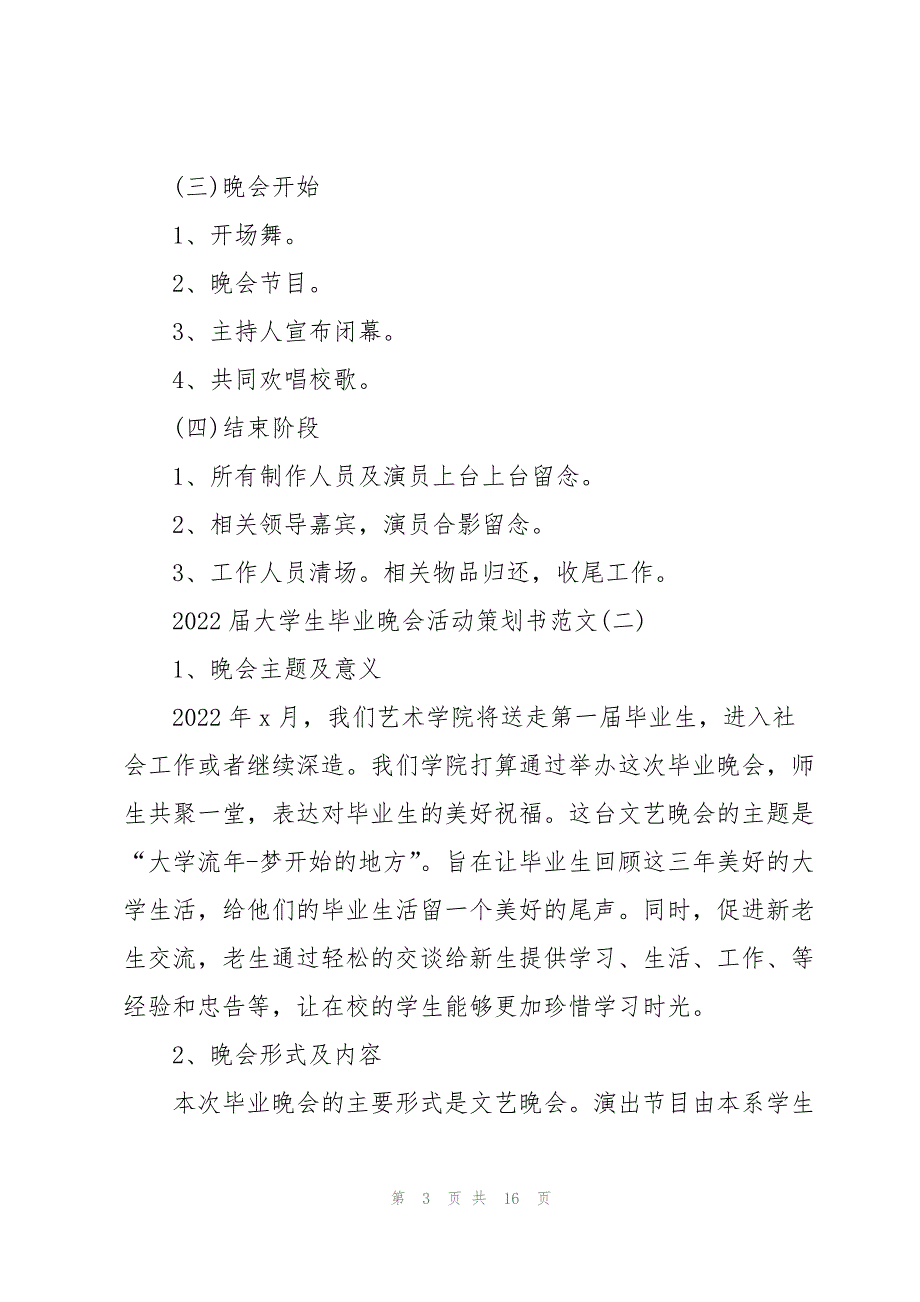 (三)晚会开始
1、开场舞。
2、晚会节目。
3、主持人宣布闭幕。
4、共同欢唱校歌。
(四)结束阶段
1、所有制作人员及演员上台上台留念。
2、相关领导嘉宾，演员合影留念。
3、工作人员清场。相关物品归还，收尾工作。
2022 届大学生毕业晚会活动策划书范文(二)
1、晚会主题及意义
2022 年 x 月，我们艺术学院将送走第一届毕业生，进入社
会工作或者继续深造。我们学院打算通过举办这次毕业晚会，师
生共聚一堂，表达对毕业生的美好祝福。这台文艺晚会的主题是
“大学流年-梦开始的地方”。旨在让毕业生回顾这三年美好的大
学生活，给他们的毕业生活留一个美好的尾声。同时，促进新老
生交流，老生通过轻松的交谈给新生提供学习、生活、工作、等
经验和忠告等，让在校的学生能够更加珍惜学习时光。
2、晚会形式及内容
本次毕业晚会的主要形式是文艺晚会。演出节目由本系学生
第 3 页 共 16 页